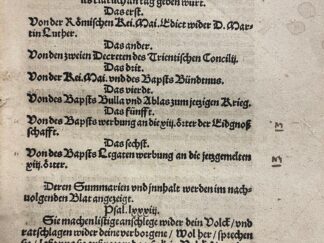 Das erst.
Von der Römischen Kei. Mai. Edict wider D. Mar-
tin Luther.
Das ander.
Von den zweien Decreten des Trientischen Concilij.
Das drit.
Von der Kei. Mai. vnd des Bapsts Bündtnus.
Das vierdt.
Von des Bapsts Bulla vnd Ablas zum jetzigen Krieg.
Das fünfft.
Von des Bapsts werbung an die xiij. örter der Eidgnoß
schafft.
Das sechst.
Von des Bapsts Legaten werbung an die jetzgemelten
xiij. örter.
Deren Summarien vnd innhalt werden im nach-
uolgenden Blat angezeigt.
Psal. lxxxiij.
Sie machen listige anschlege wider dein Volck / vnd
ratschlagen wider deine verborgene / Wol her / sprechen
13
13